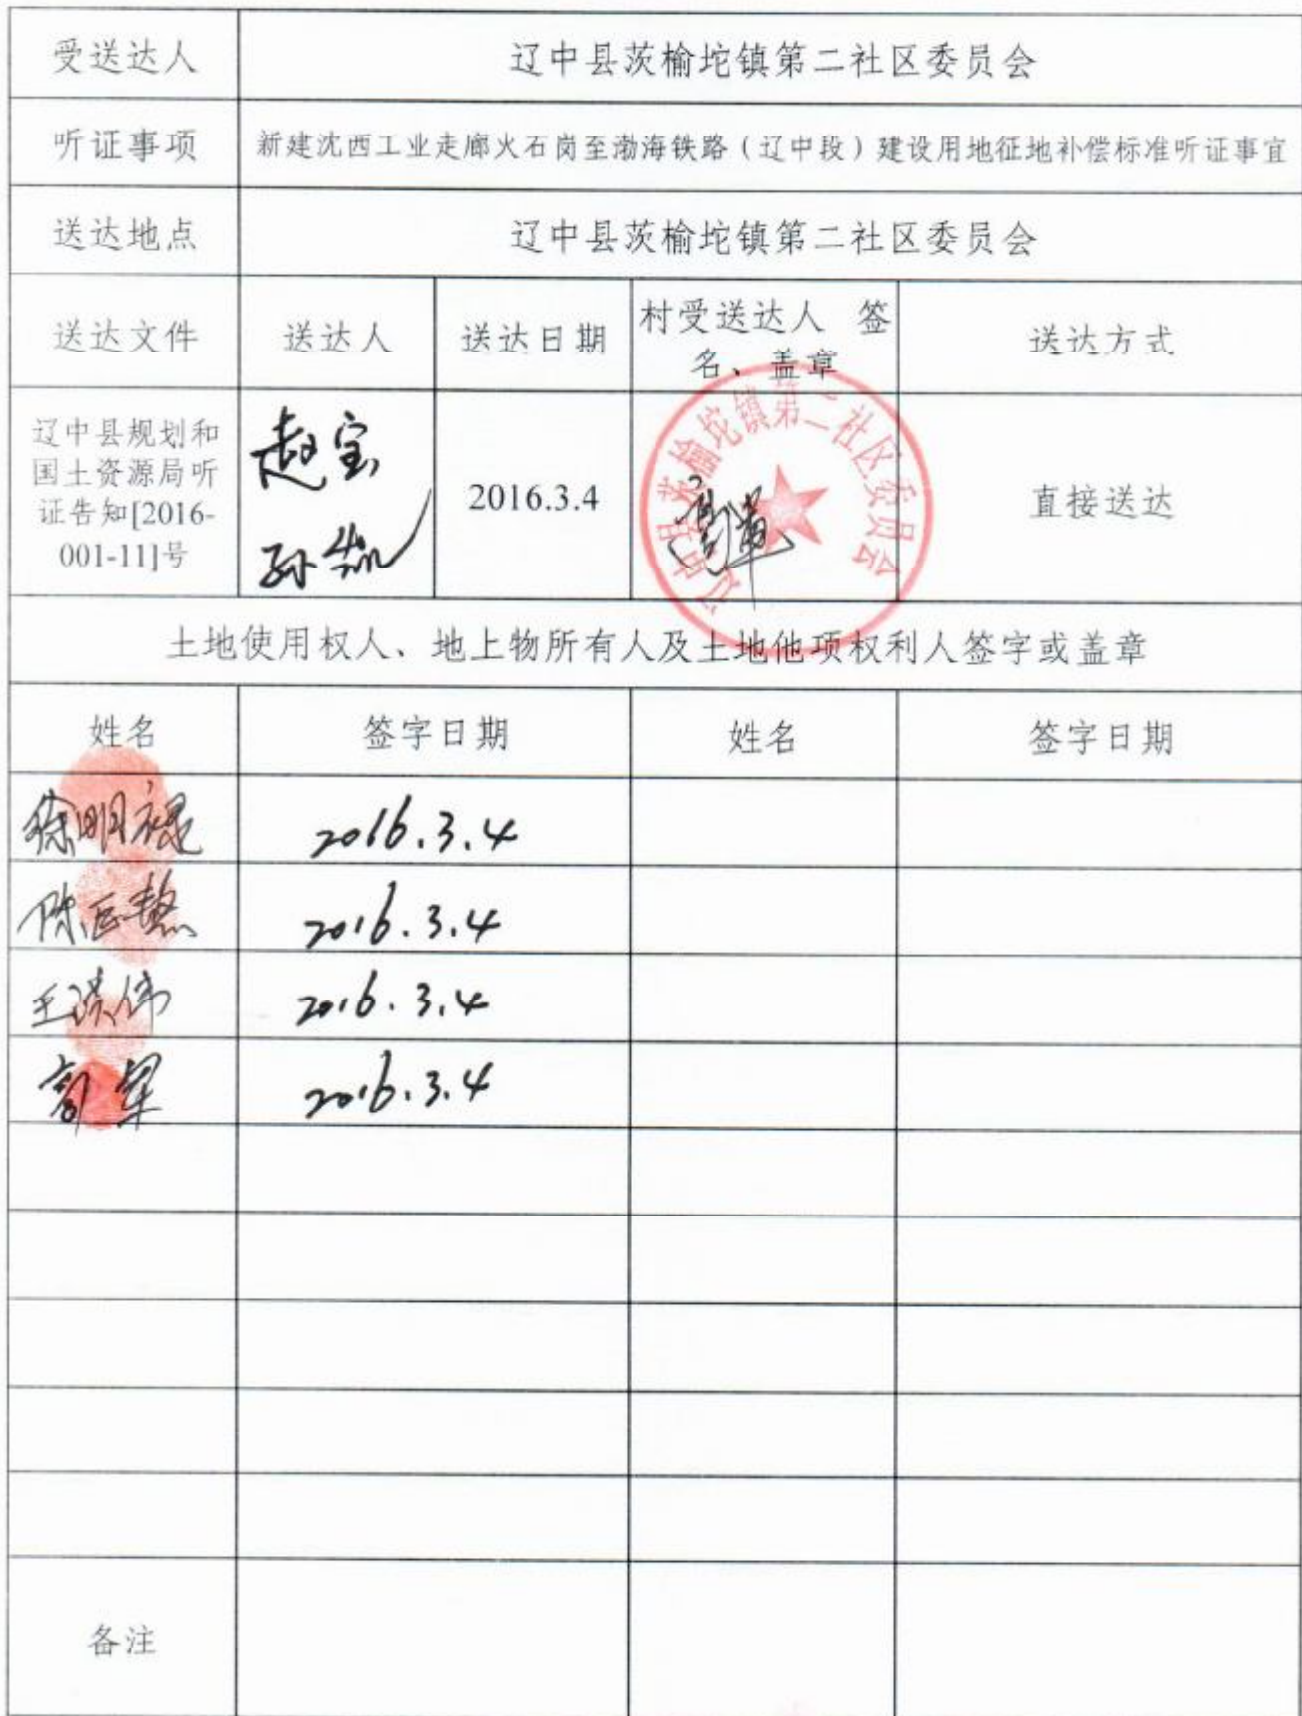 受送达人
辽中县茨榆坨镇第二社区委员会
听证事项
新建沈西工业走廊火石岗至渤海铁路（辽中段）建设用地征地补偿标准听证事宜
送达地点
辽中县茨榆坨镇第二社区委员会
送达文件
送达人
送达日期
村受送达人 签
名、盖章
送达方式
辽中县规划和
国土资源局听
证告知[2016-
001-11]号
赵宝
2016.3.4
辽中县茨榆坨镇第二社区委员会
直接送达
土地使用权人、地上物所有人及土地他项权利人签字或盖章
姓名
签字日期
姓名
签字日期
徐明禄
2016.3.4
2016.3.4
王洪伟
2016.3.4
2016.3.4
备注